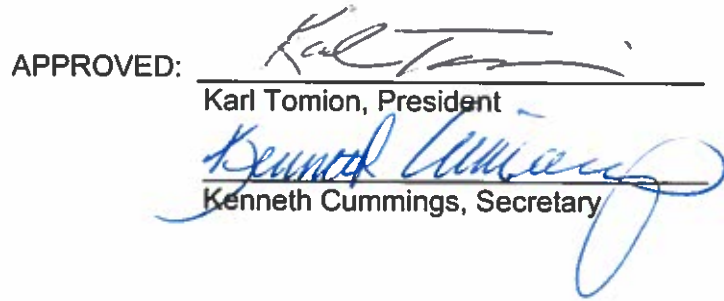 Karl Tomion
APPROVED:
Karl Tomion, President
Kenneth Cummings
Kenneth Cummings, Secretary